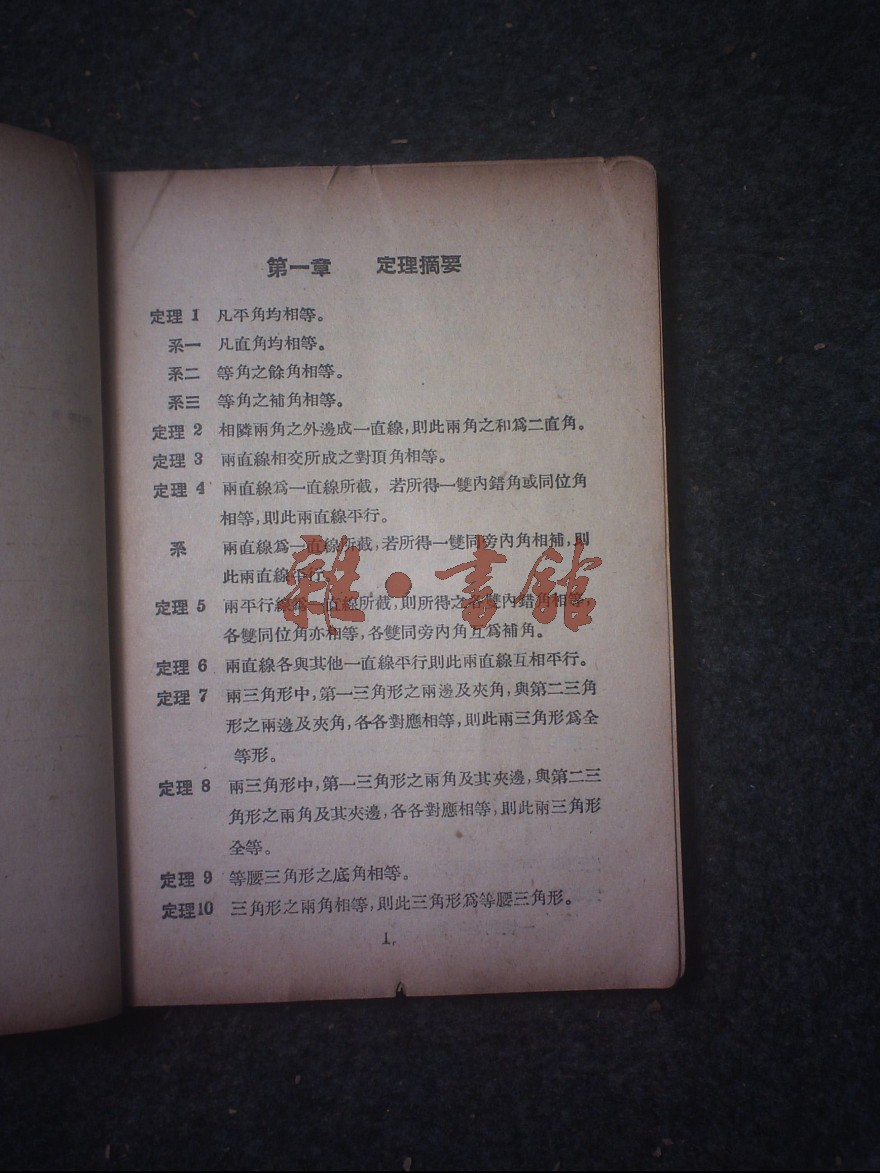 第一章　定理摘要
定理 1 凡平角均相等。
系一 凡直角均相等。
系二 等角之餘角相等。
系三 等角之補角相等。
定理 2 相隣兩角之外邊成一直線，則此兩角之和爲二直角。
定理 3 兩直線相交所成之對頂角相等。
定理 4 兩直線爲一直線所截，若所得一雙內錯角或同位角
相等，則此兩直線平行。
系 兩直線爲一直線所截，若所得一雙同旁內角相補，則
此兩直線平行。
雜·書館
定理 5 兩平行線爲一直線所截，則所得之各雙內錯角相等，
各雙同位角亦相等，各雙同旁內角互爲補角。
定理 6 兩直線各與其他一直線平行則此兩直線互相平行。
定理 7 兩三角形中，第一三角形之兩邊及夾角，與第二三角
形之兩邊及夾角，各各對應相等，則此兩三角形爲全
等形。
定理 8 兩三角形中，第一三角形之兩角及其夾邊，與第二三
角形之兩角及其夾邊，各各對應相等，則此兩三角形
全等。
定理 9 等腰三角形之底角相等。
定理10 三角形之兩角相等，則此三角形爲等腰三角形。
1.